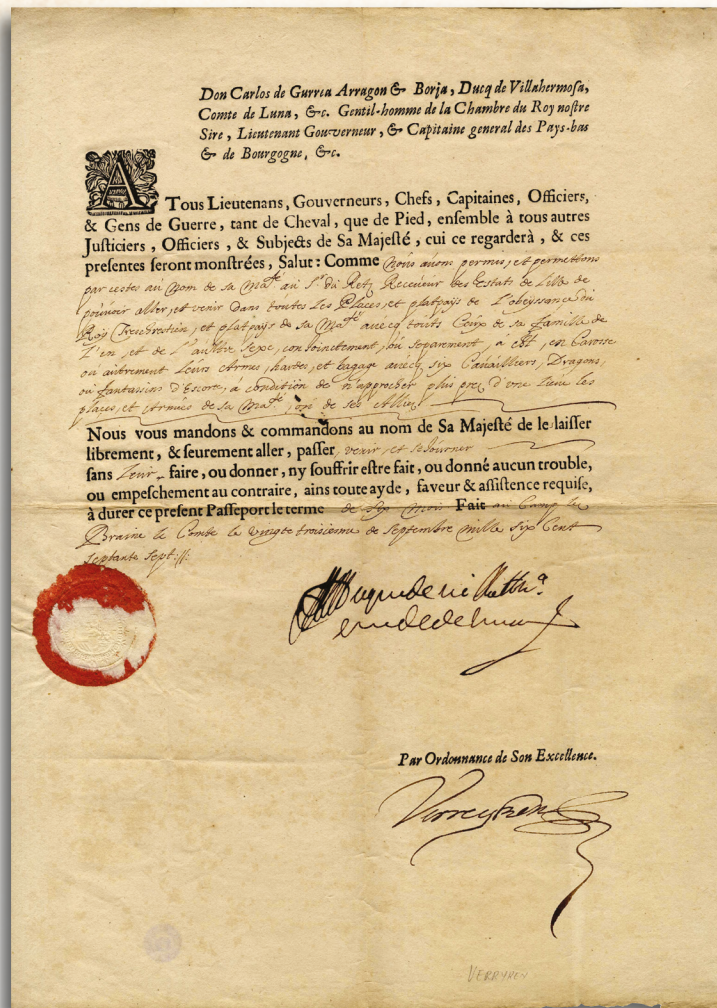 Don Carlos de Gurrea Arragon & Borja, Ducq de Villahermosa,
Comte de Luna, &c. Gentil-homme de la Chambre du Roy nostre
Sire, Lieutenant Gouverneur, & Capitaine general des Pays-bas
& de Bourgogne, &c.
A Tous Lieutenans, Gouverneurs, Chefs, Capitaines, Officiers,
& Gens de Guerre, tant de Cheval, que de Pied, ensemble à tous autres
Justiciers, Officiers, & Subjects de Sa Majesté, cui ce regarderà, & ces
presentes seront monstrées, Salut: Comme Nous avons permis, et permettons
par cestes au Nom de sa Maté au Sr du Retz Receveur des Estats de Lille de
pouvoir aller, et venir dans toutes les Places, et platpays de L'obeyssance du
Roy Treschrestien, et platpays de sa Maté avecq touts Ceux de sa famille de
L'un, et de L'aultre sexe, conjoinctement, ou separement, a en Carosse
ou autrement Leurs Armes, hardes, et bagage avecq six Cavailliers, Dragons,
ou fantassins d'Escorte, à condition de n'approcher plus prez d'une Lieue les
places, et Armées de sa Maté, de ses Alliez
Nous vous mandons & commandons au nom de Sa Majesté de le laisser
librement, & seurement aller, passer, venir, et sejourner
sans Leur faire, ou donner, ny souffrir estre fait, ou donné aucun trouble,
ou empeschement au contraire, ains toute ayde, faveur & assistence requise,
à durer ce present Passeport le terme de six mois Fait au Camp lez
Braine le Comte le vingte troisieme de Septembre mille six Cent
septante sept://:
Par Ordonnance de Son Excellence.
Verreyken
VERRYKEN